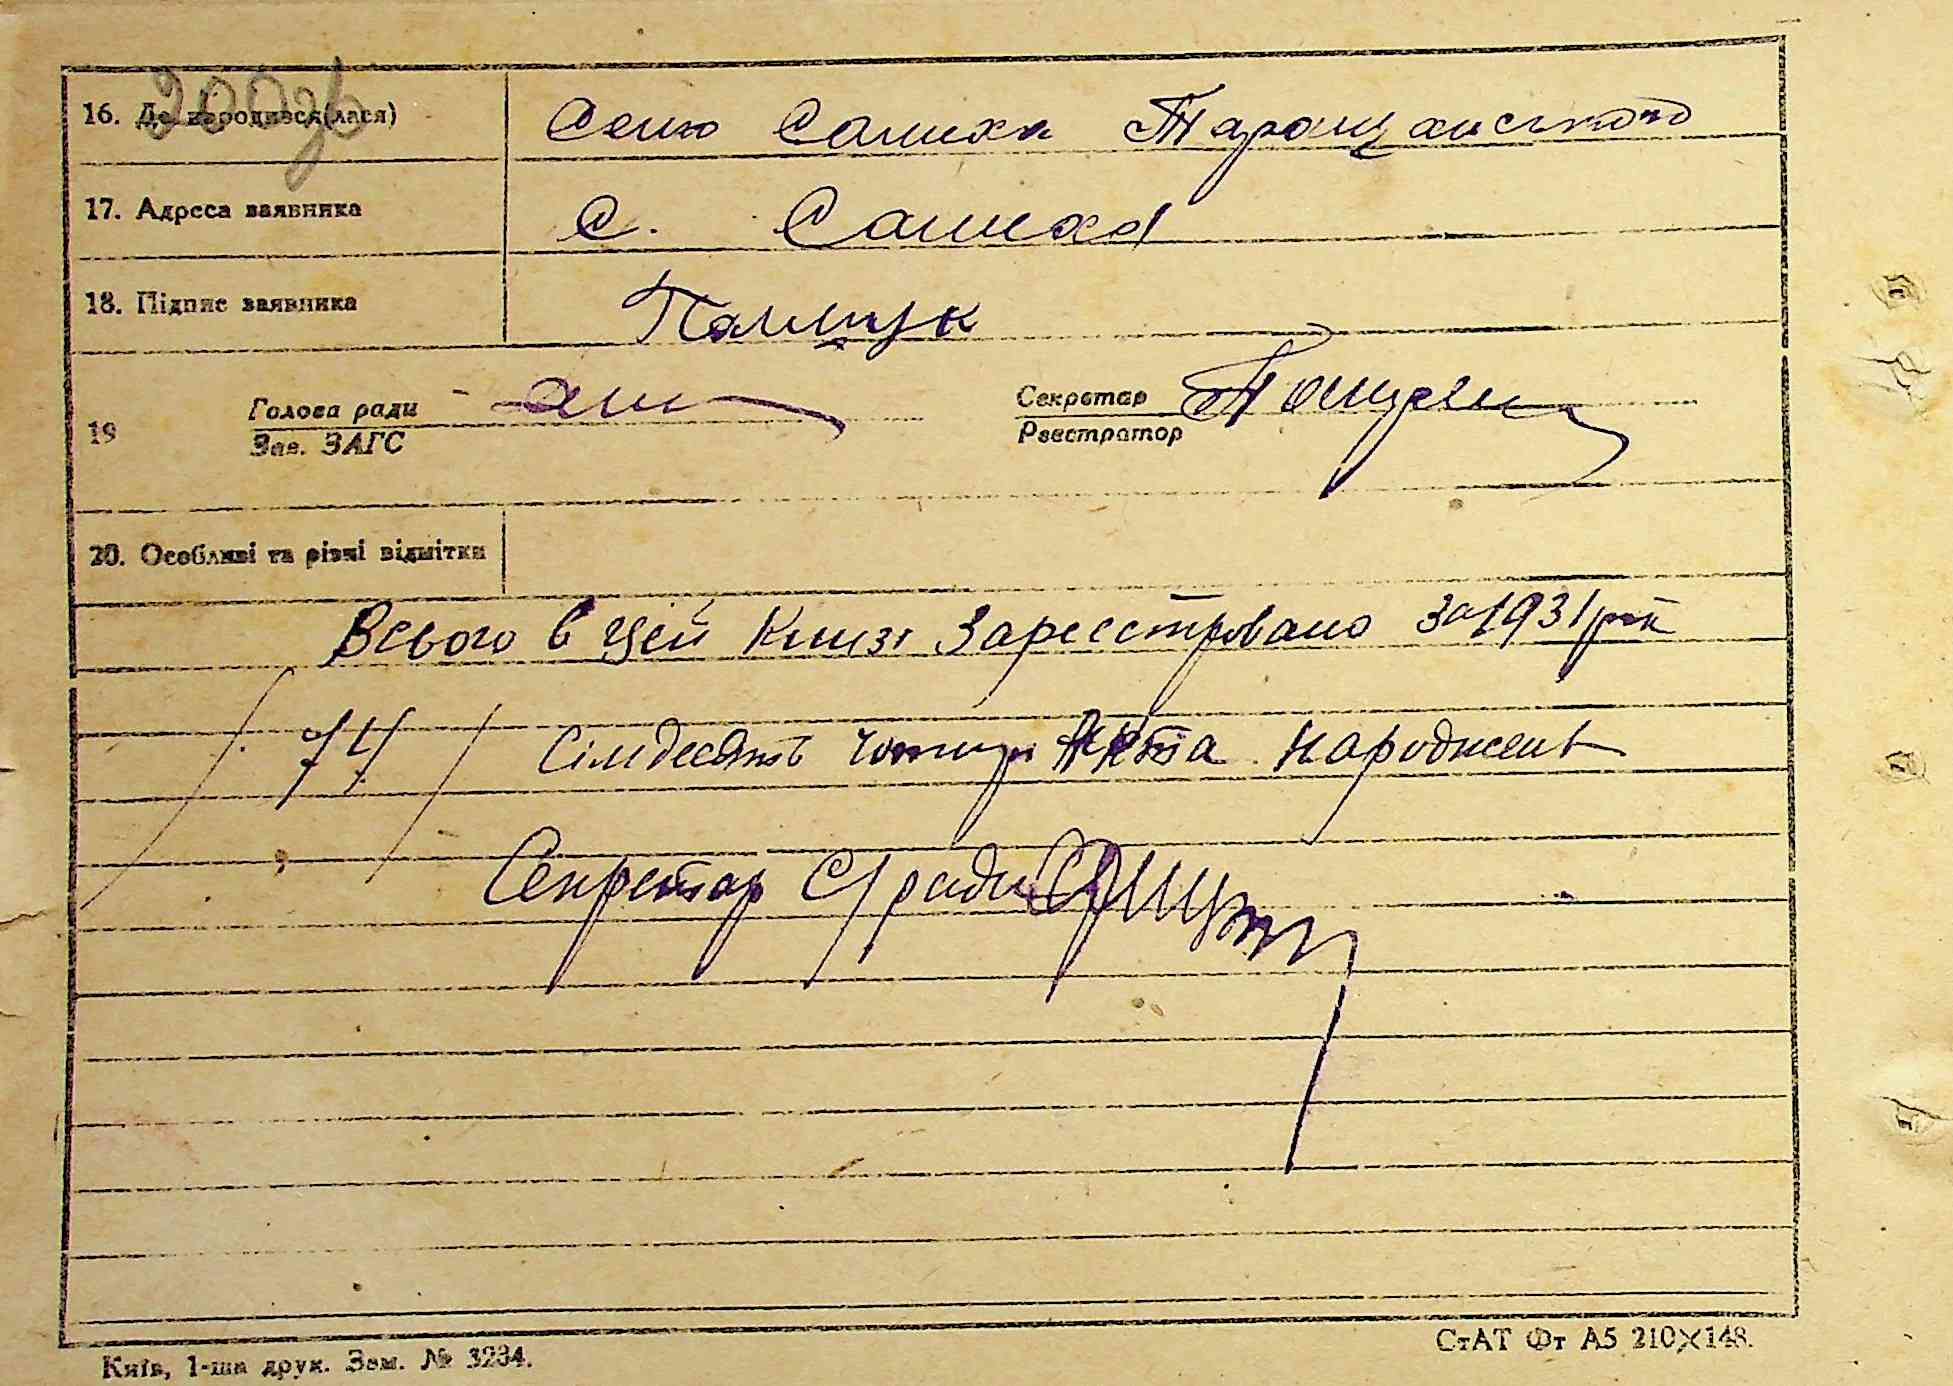 200 зв
16. Де народився(лася) Село Салиха Таращанського
17. Адреса заявника С. Салиха
18. Підпис заявника
19 Голова ради Секретар
Зав. ЗАГС Реєстратор
20. Особливі та різні відмітки
Всього в цей Книзі Зареєстровано за 1931 рік
/74/ Сімдесять чотирі Акта народжень
Секретар С/ради
Київ, 1-ша друк. Зам. № 3284.
СтАТ Фт А5 210×148.